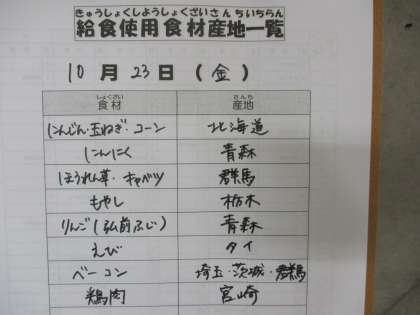 きゅうしょくしようしょくざいさんちいちらん
給食使用食材産地一覧
10月23日(金)
しょくざい さんち
食材 産地
にんじん・玉ねぎ・コーン 北海道
にんにく 青森
ほうれん草・キャベツ 群馬
もやし 栃木
りんご(弘前ふじ) 青森
えび タイ
ベーコン 埼玉・茨城・群馬
鶏肉 宮崎